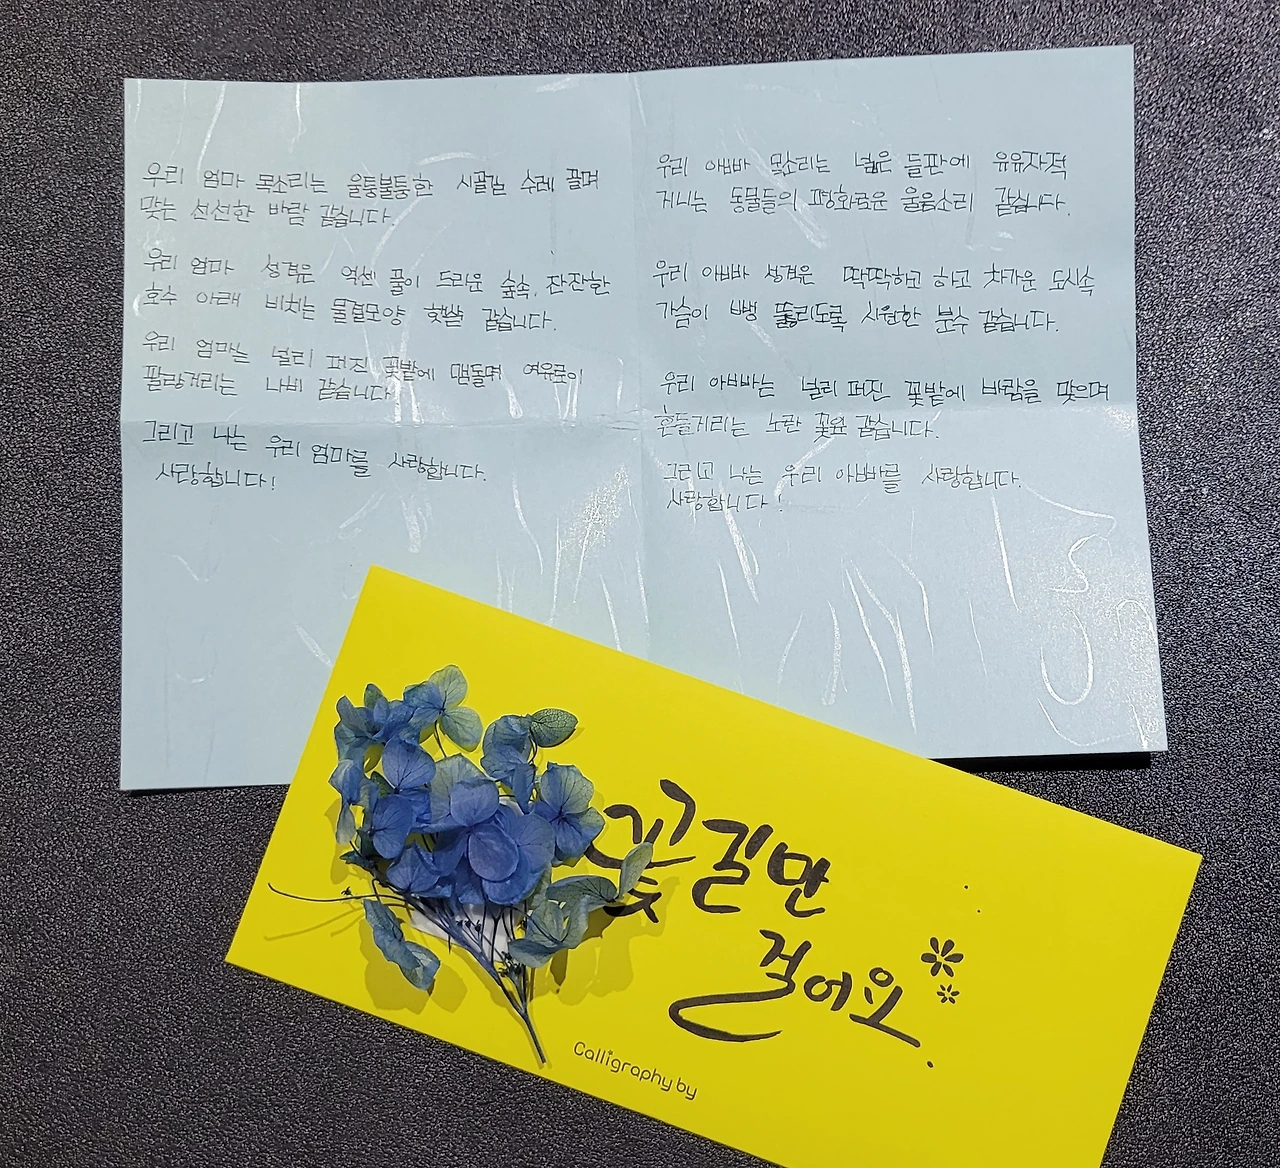 우리 엄마 목소리는 울퉁불퉁한 시골길 수레 끌며
맞는 선선한 바람 같습니다.
우리 엄마 성격은 억센 풀이 드리운 숲속, 잔잔한
호수 아래 비치는 물결모양 햇살 같습니다.
우리 엄마는 널리 퍼진 꽃밭에 맴돌며 여유로이
팔랑거리는 나비 같습니다.
그리고 나는 우리 엄마를 사랑합니다.
사랑합니다!
우리 아빠 목소리는 넓은 들판에 유유자적
거니는 동물들의 평화로운 울음소리 같습니다.
우리 아빠 성격은 딱딱하고 하고 차가운 도시속
가슴이 뻥 뚫리도록 시원한 분수 같습니다.
우리 아빠는 널리 퍼진 꽃밭에 바람을 맞으며
흔들거리는 노란 꽃잎 같습니다.
그리고 나는 우리 아빠를 사랑합니다.
사랑합니다!
꽃길만
걸어요.
Calligraphy by